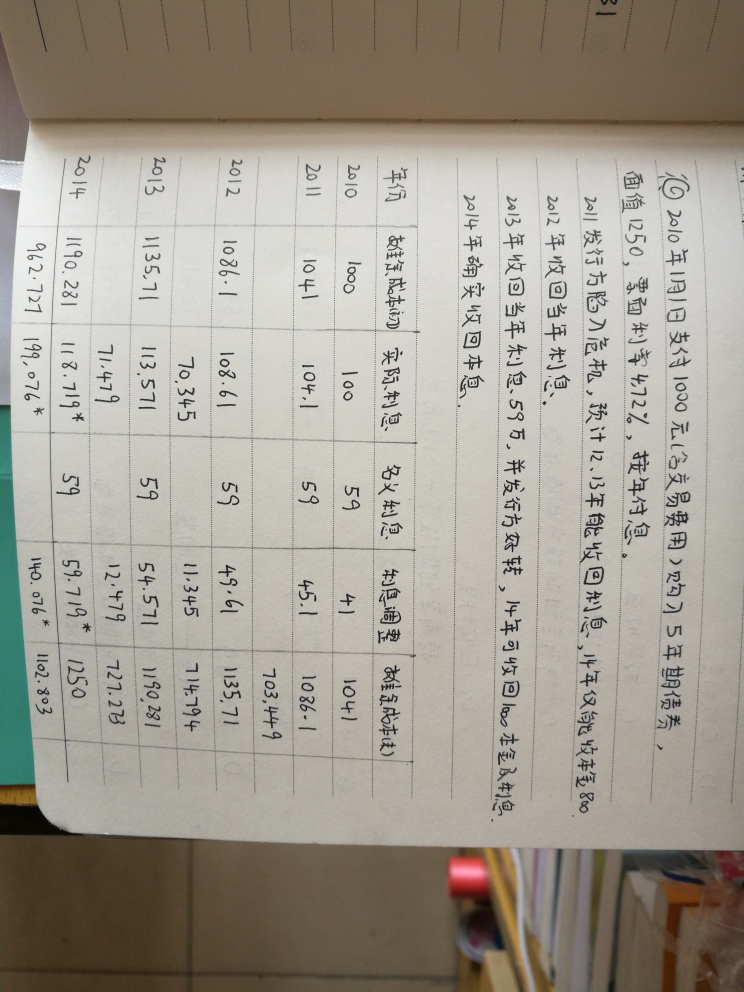 ⑯ 2010年1月1日支付1000元(含交易费用)购入5年期债券,
面值1250, 票面利率4.72%, 按年付息。
2011发行方陷入危机, 预计12、13年能收回利息, 14年仅能收本金800.
2012年收回当年利息。
2013年收回当年利息、59万, 并发行方好转, 14年可收回1000本金及利息.
2014年确实收回本息.
年份 摊余成本(初) 实际利息 名义利息 利息调整 摊余成本(末)
2010 1000 100 59 41 1041
2011 1041 104.1 59 45.1 1086.1
703.449
2012 1086.1 108.61 59 49.61 1135.71
70.345 11.345 714.794
2013 1135.71 113.571 59 54.571 1190.281
71.479 12.479 727.273
2014 1190.281 118.719* 59 59.719* 1250
962.727 199.076* 140.076* 1102.803